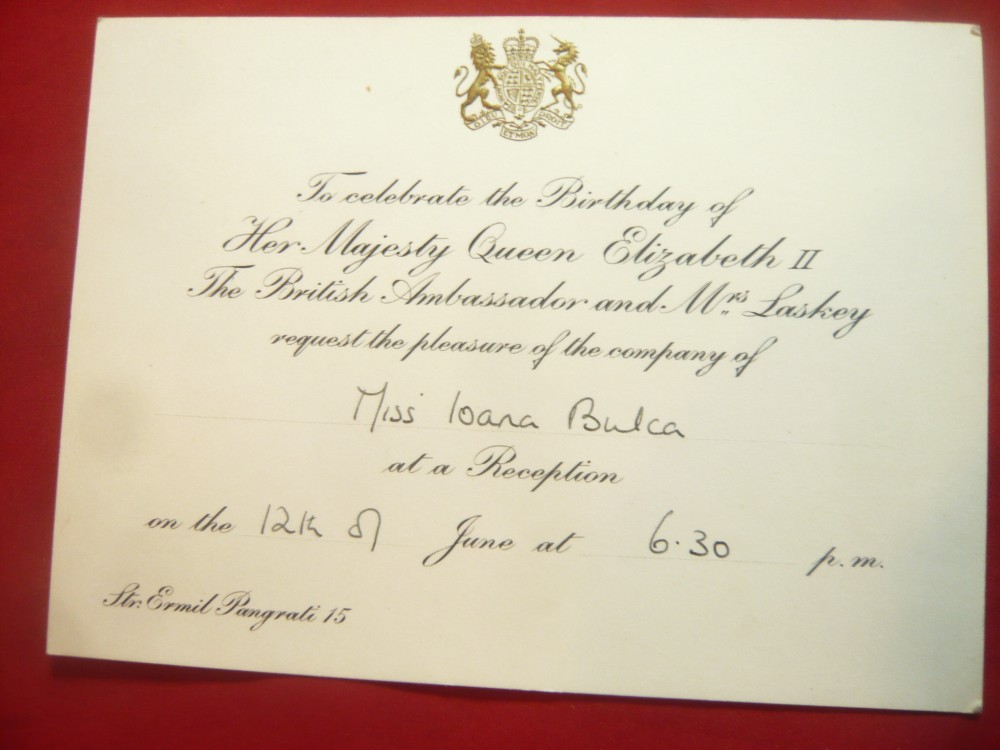 DIEU ET MON DROIT
To celebrate the Birthday of
Her Majesty Queen Elizabeth II
The British Ambassador and Mrs Laskey
request the pleasure of the company of
Miss Ioana Bulca
at a Reception
on the 12th of June at 6.30 p.m.
Str. Ermil Pangrati 15